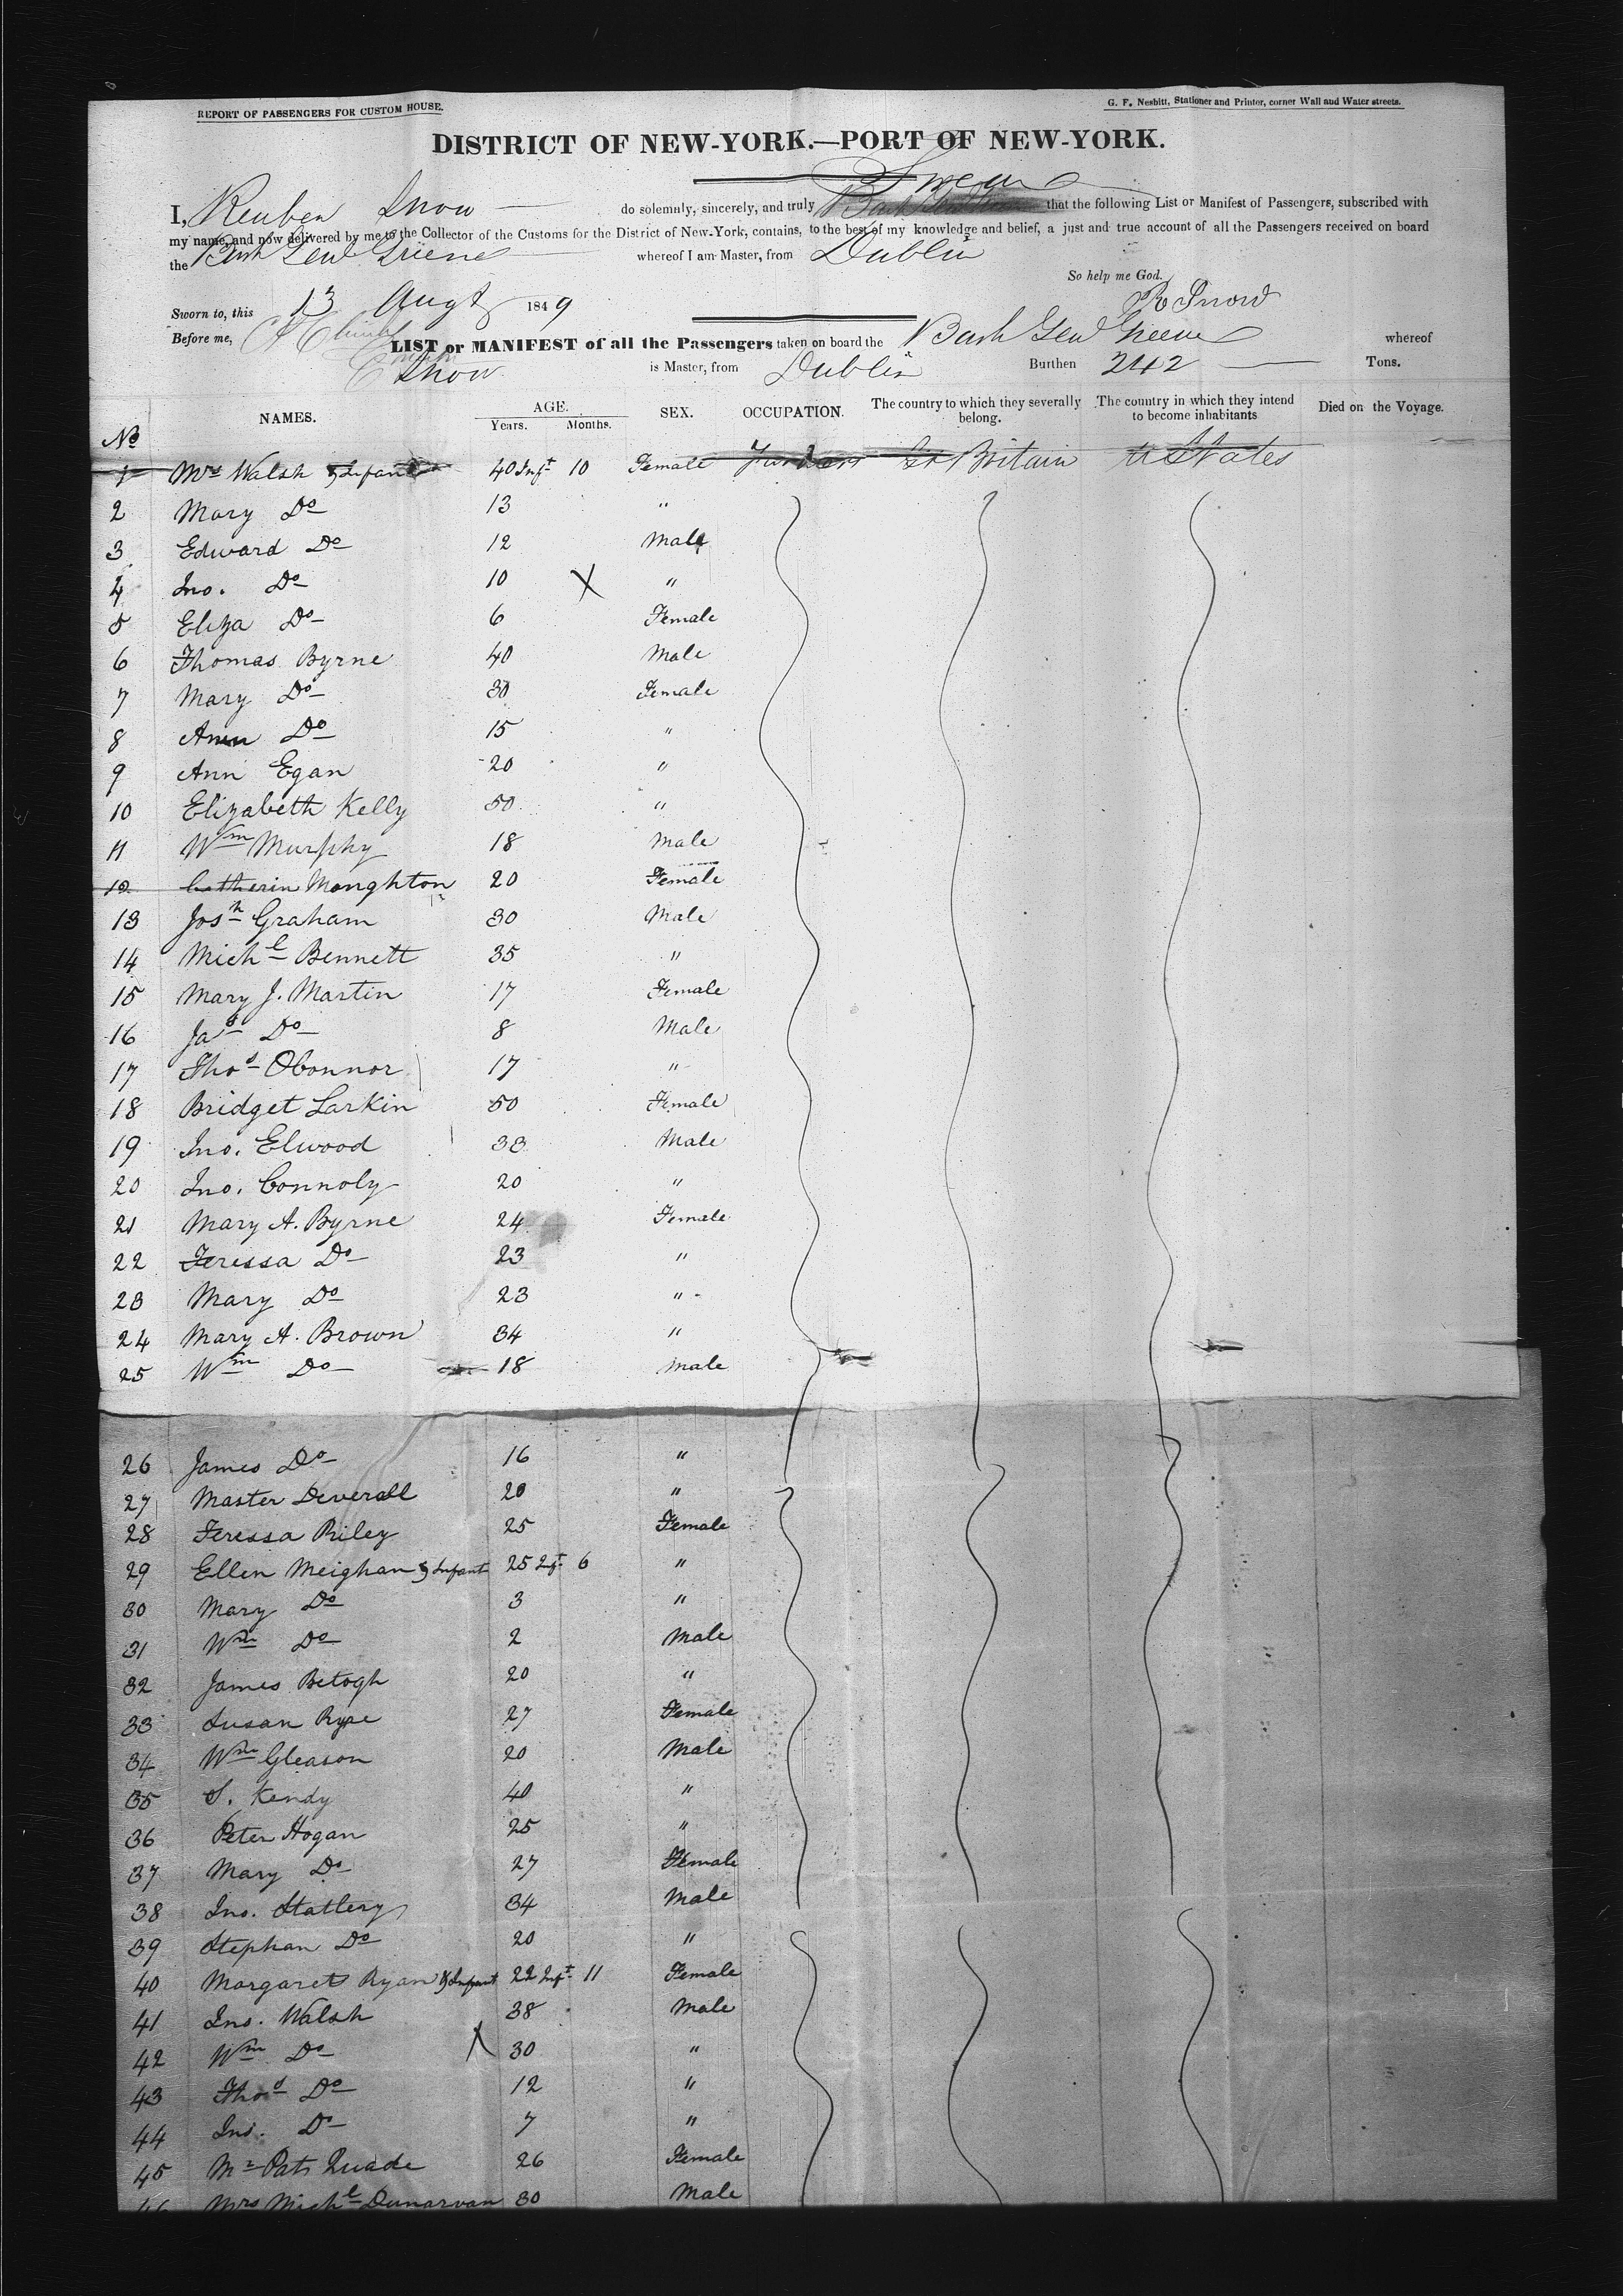 REPORT OF PASSENGERS FOR CUSTOM HOUSE.
G. F. Nesbitt, Stationer and Printer, corner Wall and Water streets.
DISTRICT OF NEW-YORK.—PORT OF NEW-YORK.
Swear
I, Reuben Snow do solemnly, sincerely, and truly that the following List or Manifest of Passengers, subscribed with
my name, and now delivered by me to the Collector of the Customs for the District of New-York, contains, to the best of my knowledge and belief, a just and true account of all the Passengers received on board
the Bark Genl Greene whereof I am Master, from Dublin
So help me God.
Sworn to, this 13 Augt 1849 R Snow
Before me,
LIST or MANIFEST of all the Passengers taken on board the Bark Genl Greene whereof
Snow is Master, from Dublin Burthen 242 Tons.
No NAMES. AGE. Years. Months. SEX. OCCUPATION. The country to which they severally belong. The country in which they intend to become inhabitants Died on the Voyage.
1 Mrs Walsh & Infant 40 Inft 10 Female Gt Britain U States
2 Mary Do 13 "
3 Edward Do 12 Male
4 Jno. Do 10 X "
5 Eliza Do 6 Female
6 Thomas Byrne 40 Male
7 Mary Do 30 Female
8 Ann Do 15 "
9 Ann Egan 20 "
10 Elizabeth Kelly 50 "
11 Wm Murphy 18 Male
12 Catherin Monghton 20 Female
13 Josh Graham 30 Male
14 Michl Bennett 35 "
15 Mary J. Martin 17 Female
16 Jas Do 8 Male
17 Thos OConnor 17 "
18 Bridget Larkin 50 Female
19 Jno. Elwood 33 Male
20 Jno. Connoly 20 "
21 Mary A. Byrne 24 Female
22 Teressa Do 23 "
23 Mary Do 23 "
24 Mary A. Brown 34 "
25 Wm Do 18 Male
26 James Do 16 "
27 Master Deverall 20 "
28 Teressa Riley 25 Female
29 Ellen Meighan & Infant 25 Inft 6 "
30 Mary Do 3 "
31 Wm Do 2 Male
32 James Betogh 20 "
33 Susan Ryce 27 Female
34 Wm Gleason 20 Male
35 S. Kendy 40 "
36 Peter Hogan 25 "
37 Mary Do 27 Female
38 Jno. Stattery 34 Male
39 Stephan Do 20 "
40 Margaret Ryan & Infant 22 Inft 11 Female
41 Jno. Walsh 38 Male
42 Wm Do X 30 "
43 Thos Do 12 "
44 Jno. Do 7 "
45 Mr Patk Quade 26 Female
46 Mrs Michl Dunarvan 30 Male